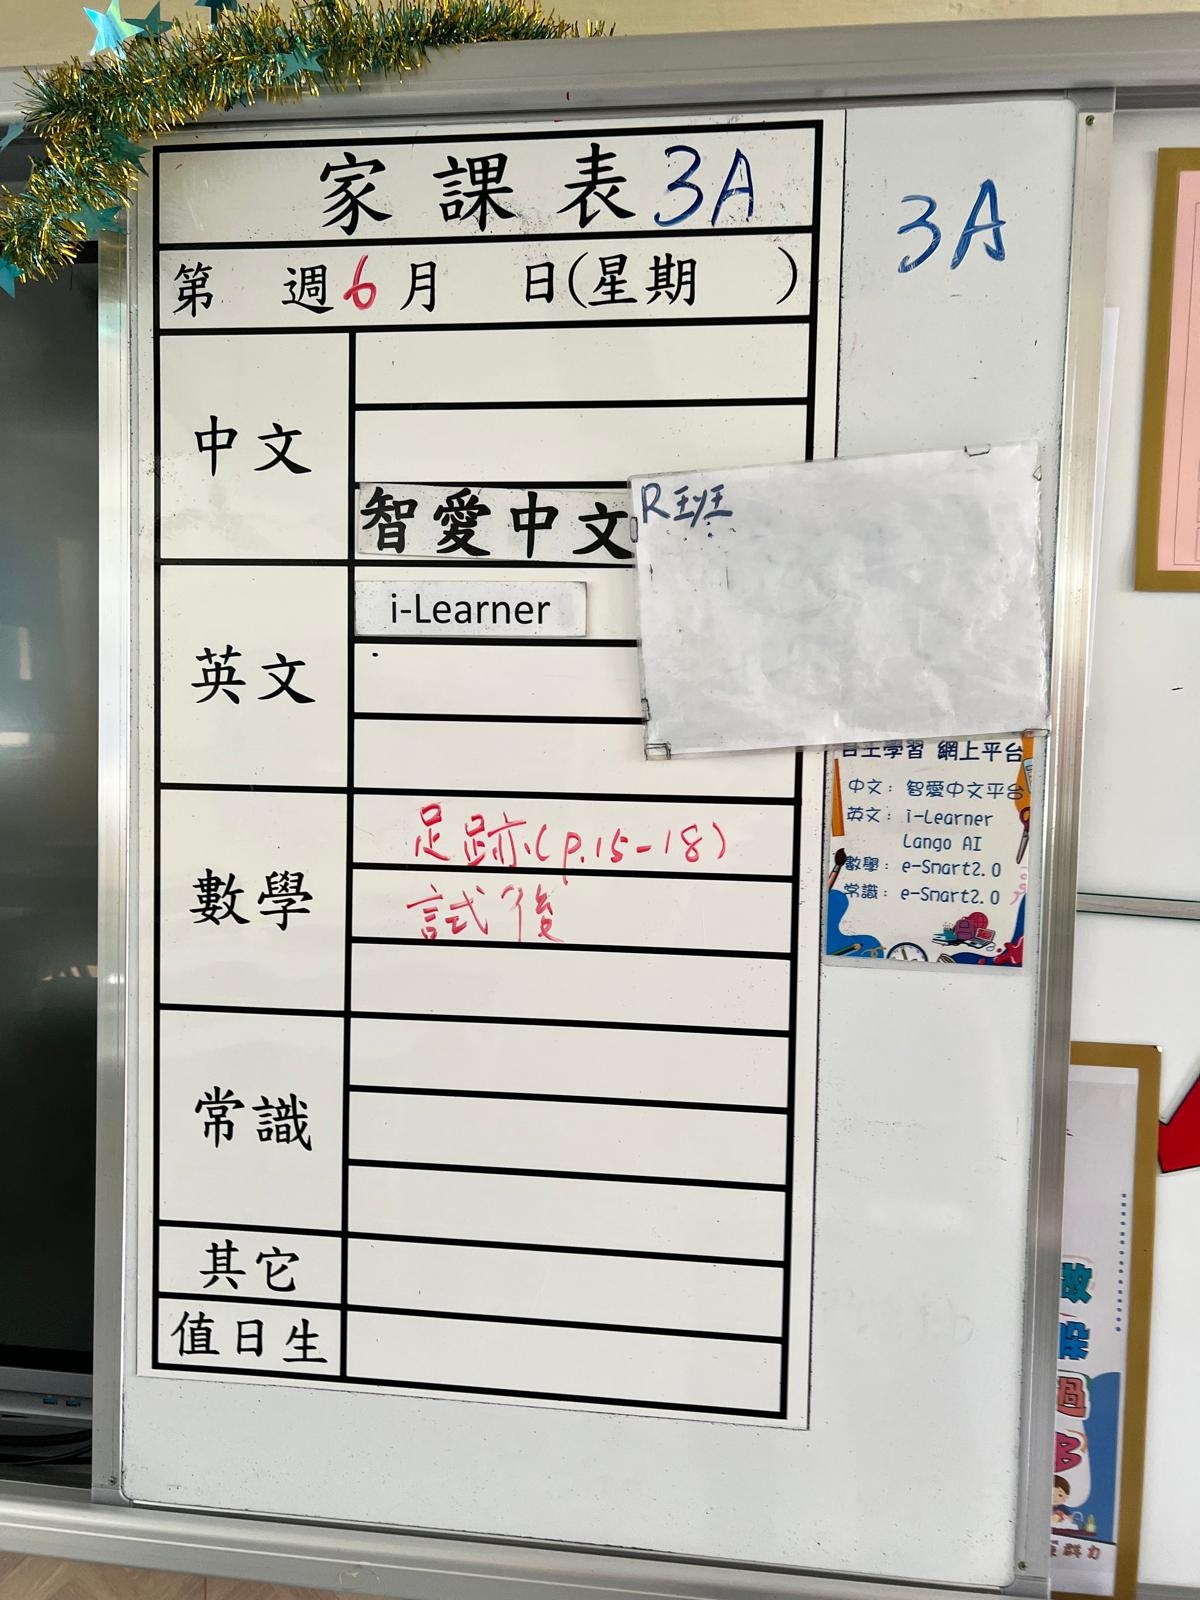 家課表 3A
3A
第 週 6月 日(星期 )
中文
智愛中文
R班
英文
i-Learner
自主學習 網上平台
中文：智愛中文平台
英文：i-Learner
Lango AI
數學：e-Smart2.0
常識：e-Smart2.0
數學
足跡(p.15-18)
試後
常識
其它
值日生